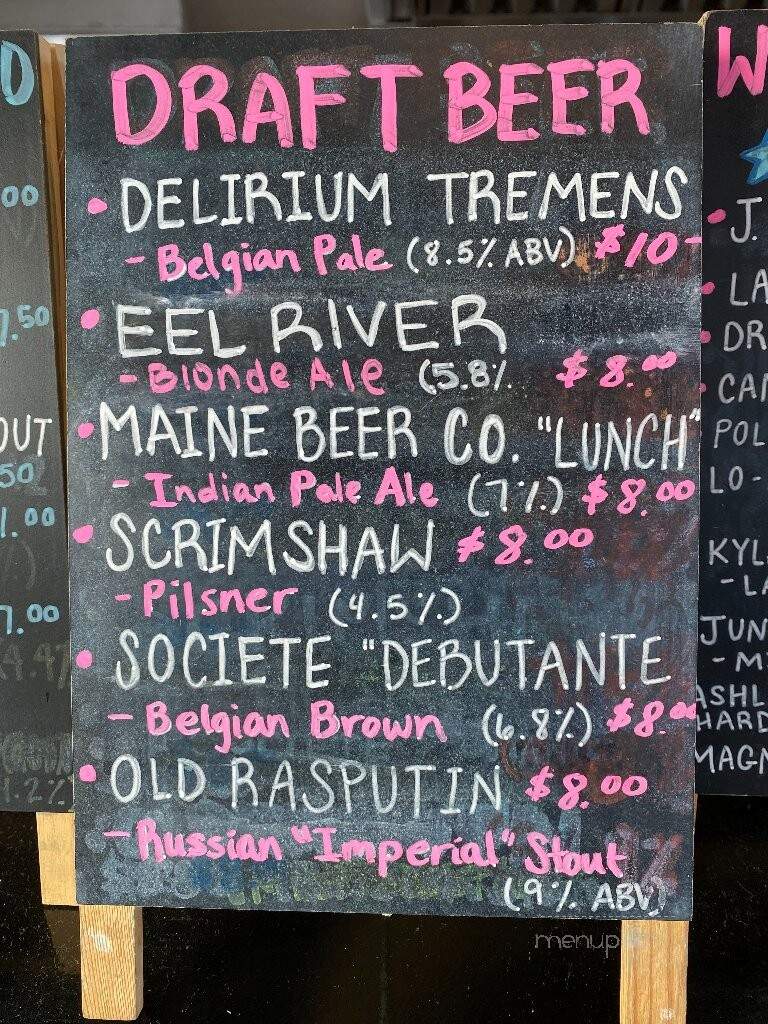 DRAFT BEER
• DELIRIUM TREMENS
- Belgian Pale (8.5% ABV) $10-
• EEL RIVER
- Blonde Ale (5.8% $8.00
• MAINE BEER CO. "LUNCH"
- Indian Pale Ale (7%) $8.00
• SCRIMSHAW $8.00
- Pilsner (4.5%)
• SOCIETE "DEBUTANTE
- Belgian Brown (6.8%) $8.00
• OLD RASPUTIN $8.00
- Russian "Imperial" Stout
(9% ABV)
D
00
7.50
OUT
50
1.00
7.00
W
• J.
• LA
• DR
• CAN
POL
LO-
KYL
- LA
JUN
- M
ASHL
HARD
MAGN
menup